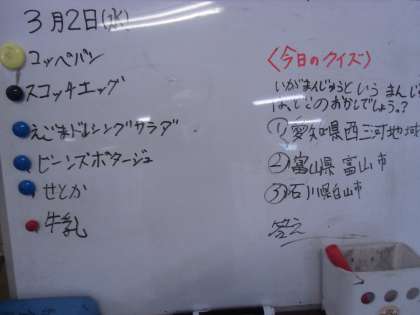 3月2日(水)
コッペパン
スコッチエッグ
えごまドレッシングサラダ
ビーンズポタージュ
せとか
牛乳
〈今日のクイズ〉
いがまんじゅうという まんじ
はどこのおかしでしょう?
①愛知県西三河地
②富山県富山市
③石川県白山市
答え